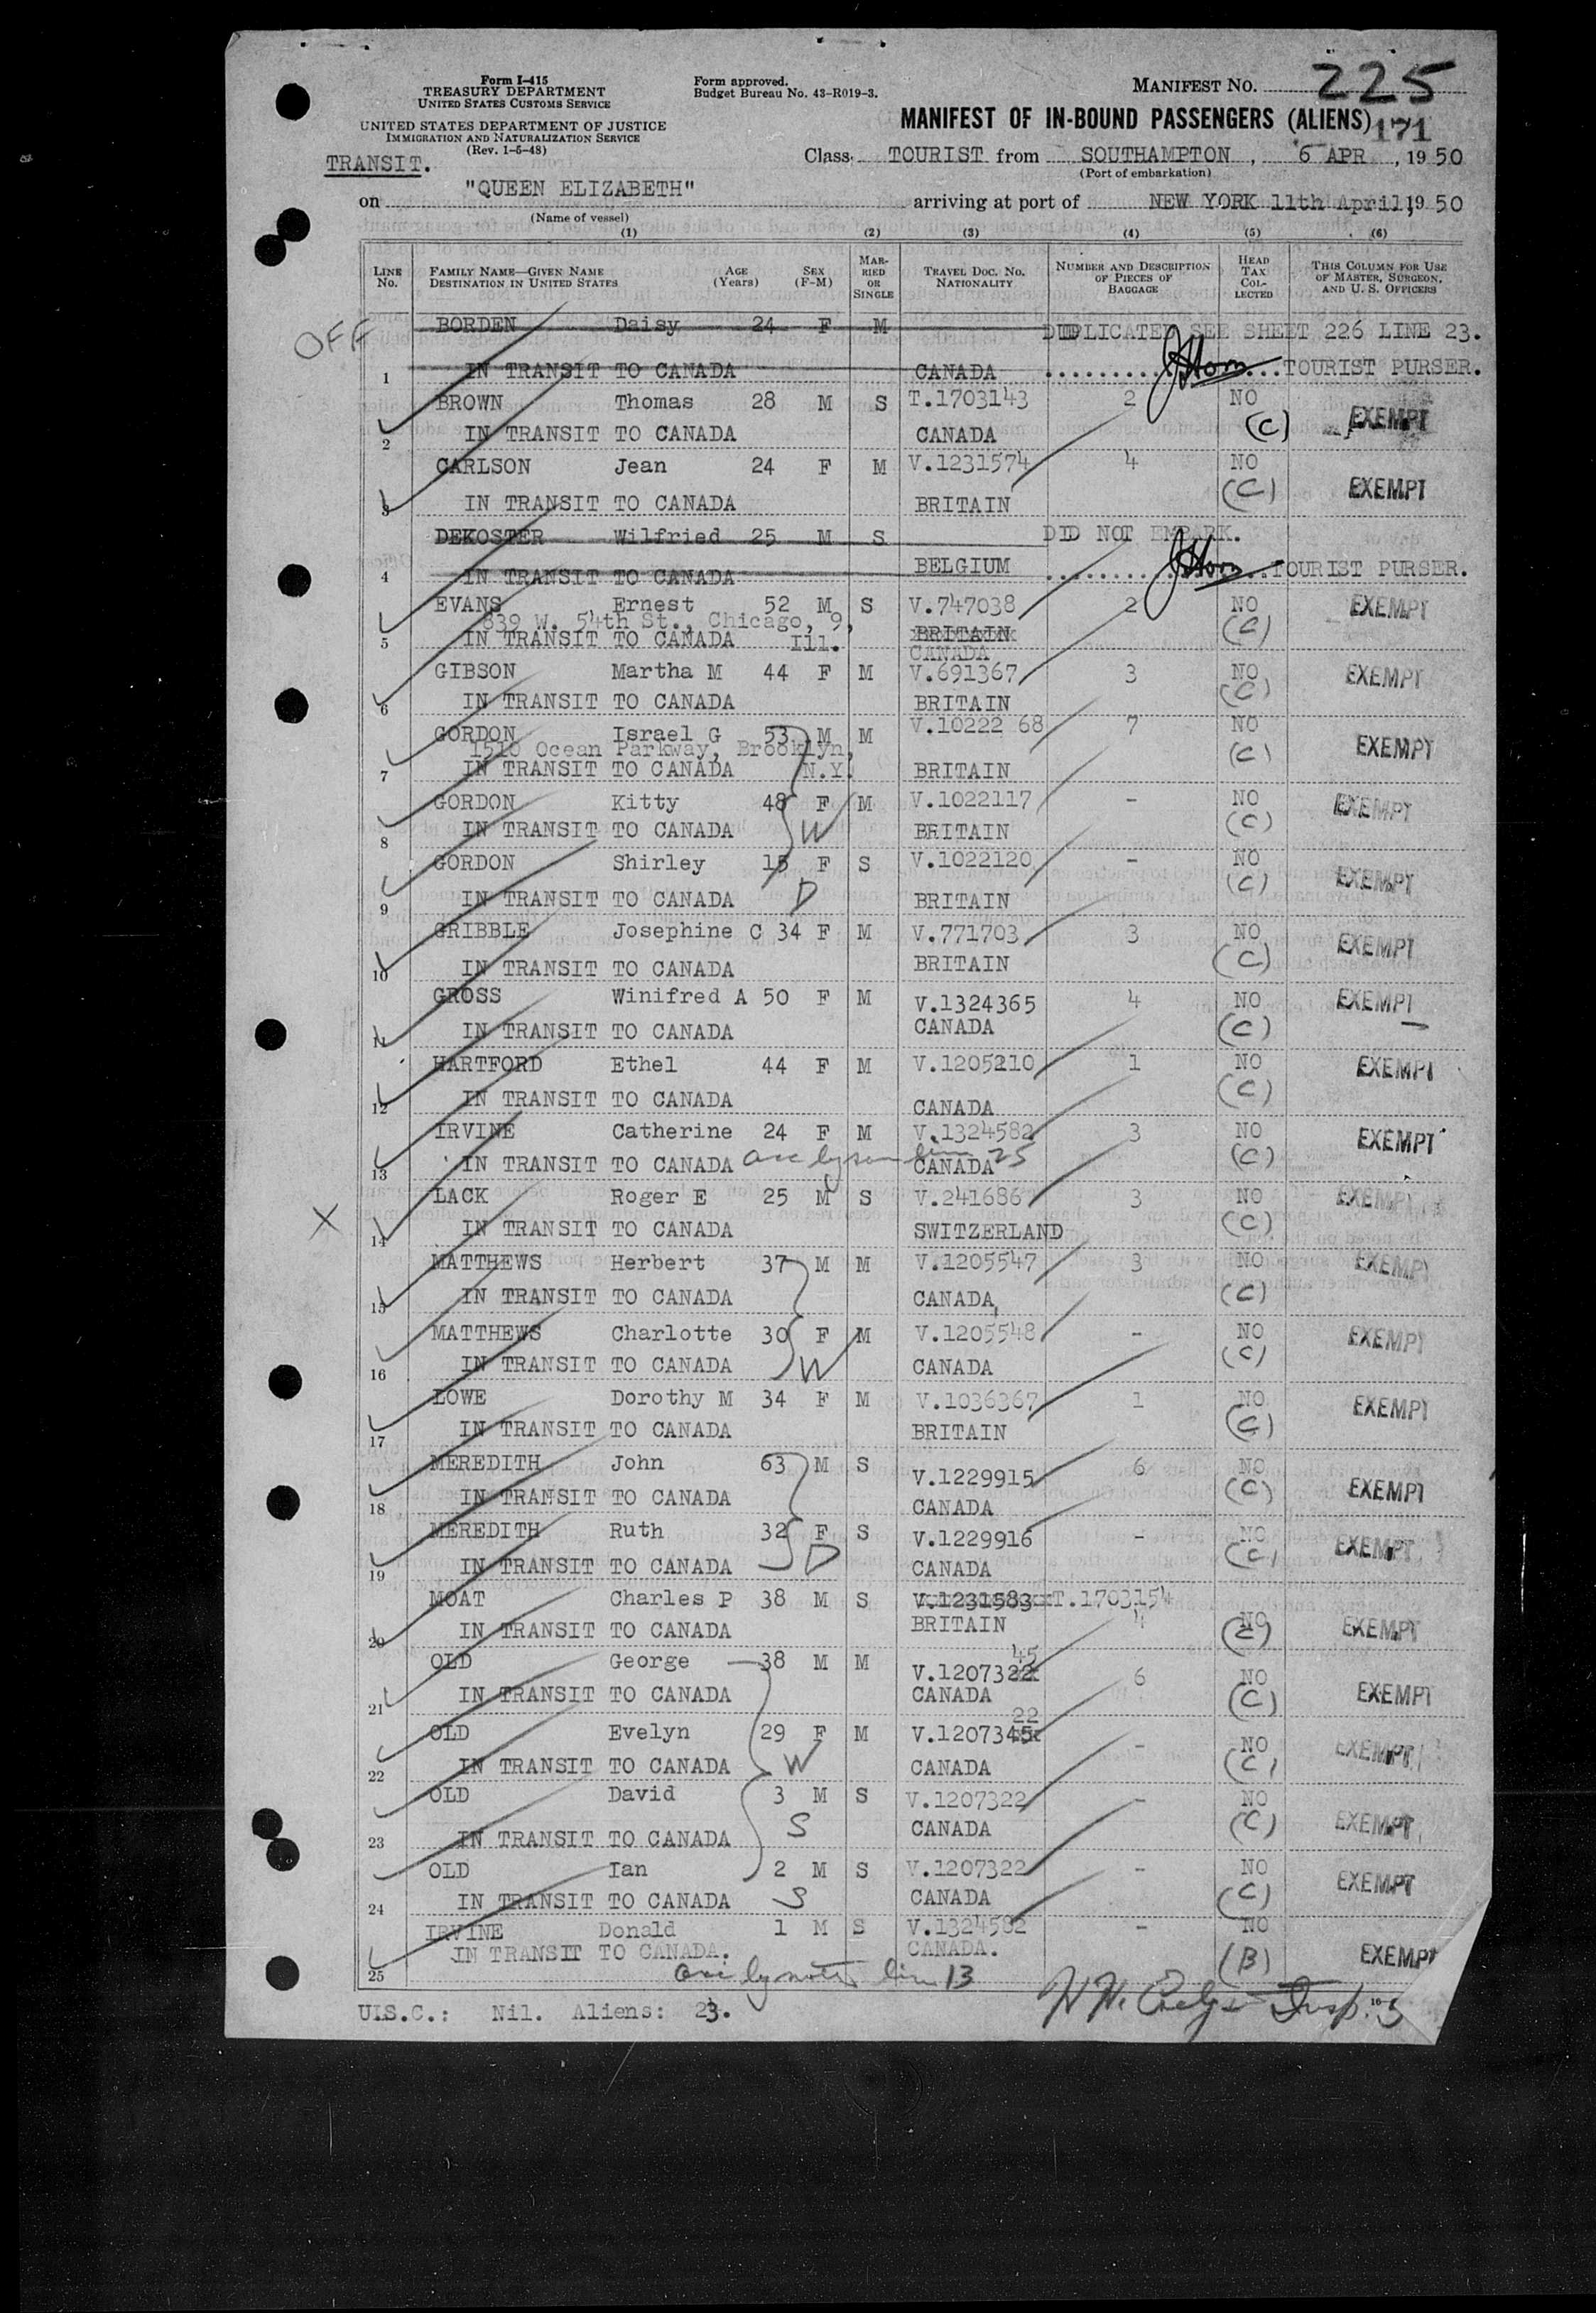 Form I-415
TREASURY DEPARTMENT
UNITED STATES CUSTOMS SERVICE
UNITED STATES DEPARTMENT OF JUSTICE
IMMIGRATION AND NATURALIZATION SERVICE
(Rev. 1-5-48)
TRANSIT.
Form approved.
Budget Bureau No. 43-R019-3.
MANIFEST NO. 225
MANIFEST OF IN-BOUND PASSENGERS (ALIENS) 171
Class TOURIST from SOUTHAMPTON, 6 APR, 1950
(Port of embarkation)
on "QUEEN ELIZABETH" arriving at port of NEW YORK 11th April, 1950
(Name of vessel)
(1) (2) (3) (4) (5) (6)
LINE NO. FAMILY NAME—GIVEN NAME DESTINATION IN UNITED STATES AGE (YEARS) SEX (F-M) MARRIED OR SINGLE TRAVEL DOC. NO. NATIONALITY NUMBER AND DESCRIPTION OF PIECES OF BAGGAGE HEAD TAX COLLECTED THIS COLUMN FOR USE OF MASTER, SURGEON, AND U. S. OFFICERS
OFF BORDEN Daisy 24 F M DUPLICATED SEE SHEET 226 LINE 23.
1 IN TRANSIT TO CANADA CANADA TOURIST PURSER.
BROWN Thomas 28 M S T.1703143 2 NO
2 IN TRANSIT TO CANADA CANADA (C) EXEMPT
CARLSON Jean 24 F M V.1231574 4 NO
3 IN TRANSIT TO CANADA BRITAIN (C) EXEMPT
DEKOSTER Wilfried 25 M S DID NOT EMBARK.
4 IN TRANSIT TO CANADA BELGIUM TOURIST PURSER.
EVANS Ernest 52 M S V.747038 2 NO EXEMPT
839 W. 54th St., Chicago, 9, Ill.
5 IN TRANSIT TO CANADA BRITAIN CANADA (C)
GIBSON Martha M 44 F M V.691367 3 NO EXEMPT
6 IN TRANSIT TO CANADA BRITAIN (C)
GORDON Israel G 53 M M V.10222 68 7 NO
1510 Ocean Parkway, Brooklyn, N.Y.
7 IN TRANSIT TO CANADA BRITAIN (C) EXEMPT
GORDON Kitty 48 F M V.1022117 - NO EXEMPT
8 IN TRANSIT TO CANADA W BRITAIN (C)
GORDON Shirley 15 F S V.1022120 - NO
9 IN TRANSIT TO CANADA D BRITAIN (C) EXEMPT
GRIBBLE Josephine C 34 F M V.771703 3 NO EXEMPT
10 IN TRANSIT TO CANADA BRITAIN (C)
GROSS Winifred A 50 F M V.1324365 4 NO EXEMPT
11 IN TRANSIT TO CANADA CANADA (C)
HARTFORD Ethel 44 F M V.1205210 1 NO EXEMPT
12 IN TRANSIT TO CANADA CANADA (C)
IRVINE Catherine 24 F M V.1324582 3 NO EXEMPT
13 IN TRANSIT TO CANADA acc by son line 25 CANADA (C)
X LACK Roger E 25 M S V.241686 3 NO EXEMPT
14 IN TRANSIT TO CANADA SWITZERLAND (C)
MATTHEWS Herbert 37 M M V.1205547 3 NO EXEMPT
15 IN TRANSIT TO CANADA CANADA (C)
MATTHEWS Charlotte 30 F M V.1205548 - NO EXEMPT
16 IN TRANSIT TO CANADA W CANADA (C)
LOWE Dorothy M 34 F M V.1036367 1 NO EXEMPT
17 IN TRANSIT TO CANADA BRITAIN (C)
MEREDITH John 63 M S V.1229915 6 NO
18 IN TRANSIT TO CANADA CANADA (C) EXEMPT
MEREDITH Ruth 32 F S V.1229916 - NO
19 IN TRANSIT TO CANADA D CANADA (C) EXEMPT
MOAT Charles P 38 M S V.1231583 T.1703154
20 IN TRANSIT TO CANADA BRITAIN 4 NO (C) EXEMPT
OLD George 38 M M V.1207322 45 6 NO
21 IN TRANSIT TO CANADA CANADA (C) EXEMPT
OLD Evelyn 29 F M V.1207345 22 - NO
22 IN TRANSIT TO CANADA W CANADA (C) EXEMPT
OLD David 3 M S V.1207322 - NO
23 IN TRANSIT TO CANADA S CANADA (C) EXEMPT
OLD Ian 2 M S V.1207322 - NO
24 IN TRANSIT TO CANADA S CANADA (C) EXEMPT
IRVINE Donald 1 M S V.1324582 - NO
IN TRANSIT TO CANADA. CANADA. (B) EXEMPT
25 acc by mother line 13
U.S.C.: Nil. Aliens: 23. Insp.